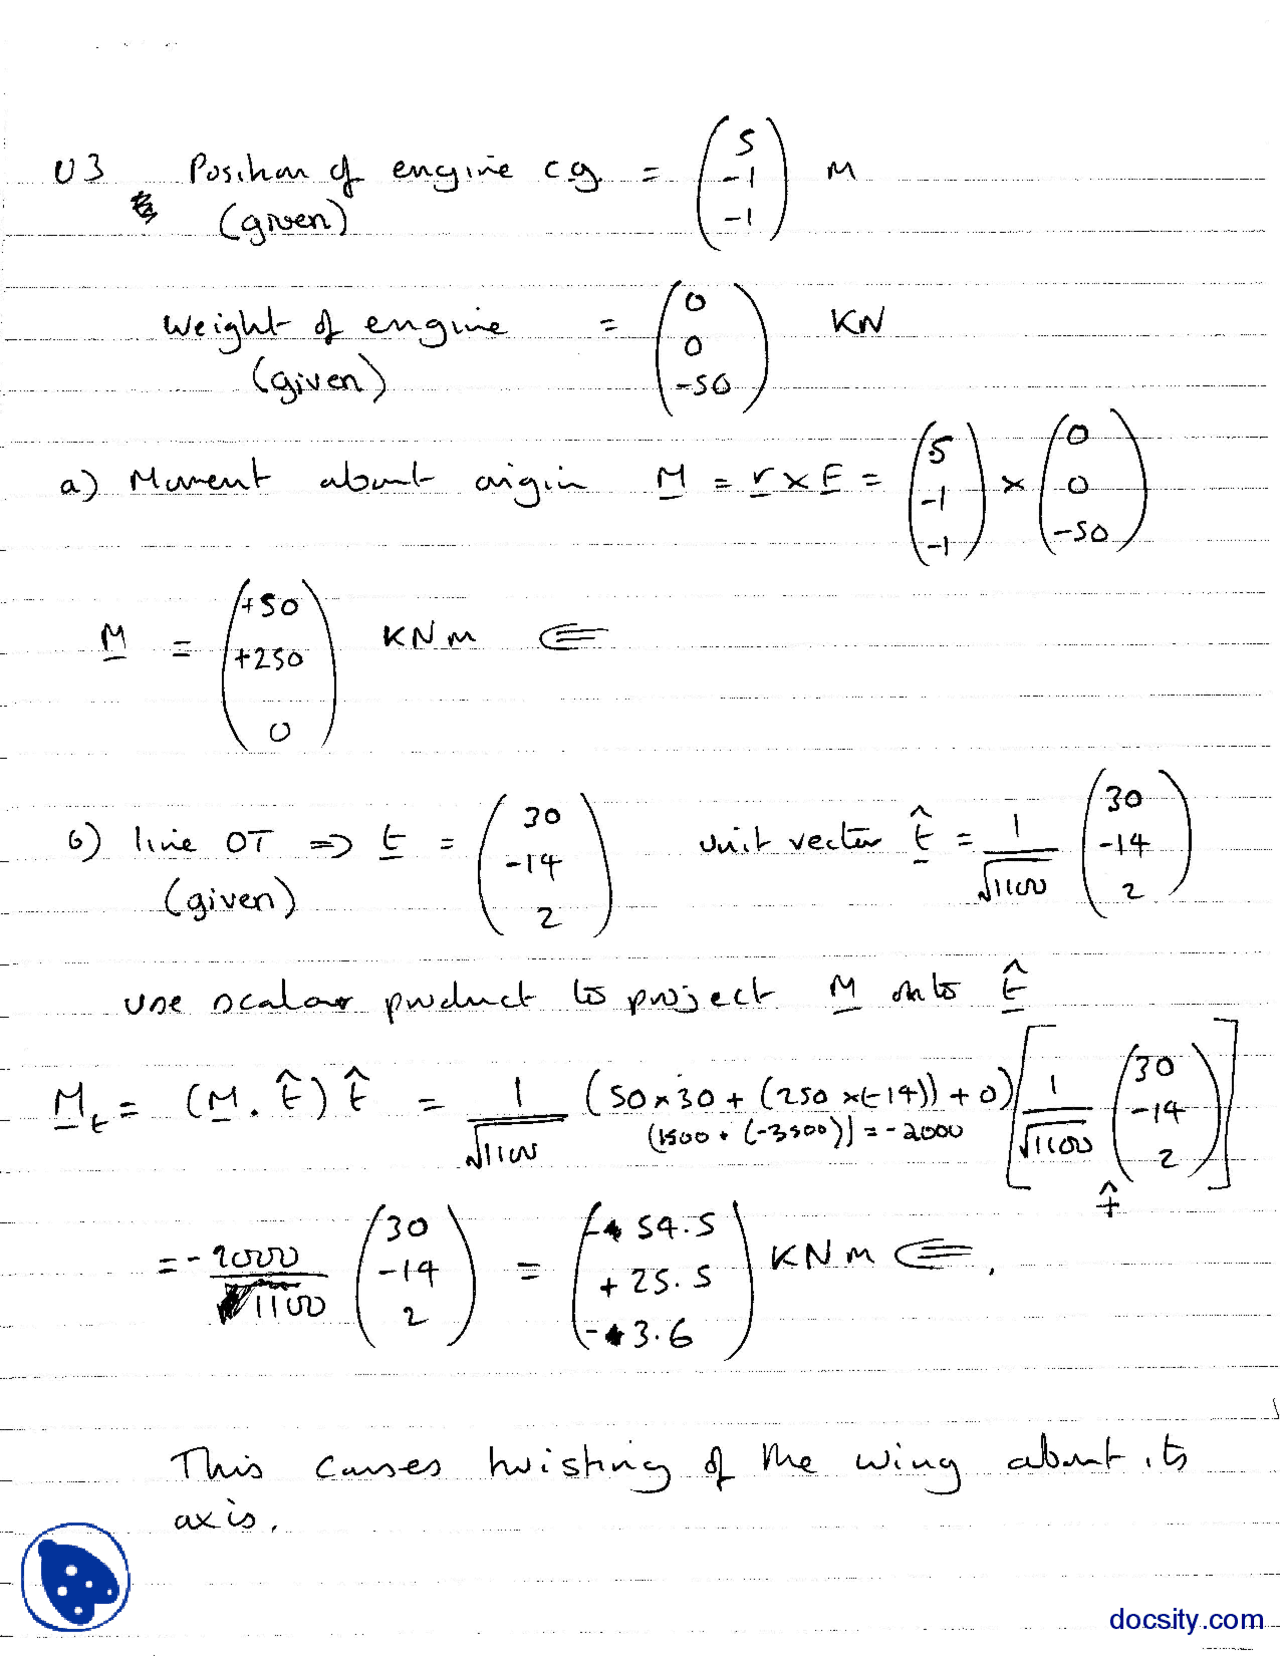 U3 Position of engine c.g. = (5 -1 -1) M
(given)
Weight of engine = (0 0 -50) KN
(given)
a) Moment about origin M = r x F = (5 -1 -1) x (0 0 -50)
M = (+50 +250 0) KNm
b) line OT => t = (30 -14 2) unit vector t̂ = 1/√1100 (30 -14 2)
(given)
use scalar product to project M onto t̂
M_t = (M . t̂) t̂ = 1/√1100 (50x30 + (250 x(-14)) + 0) [1/√1100 (30 -14 2)]
(1500 + (-3500)) = -2000
t̂
= -2000/1100 (30 -14 2) = (-54.5 +25.5 -3.6) KNm
This causes twisting of the wing about its
axis.
docsity.com